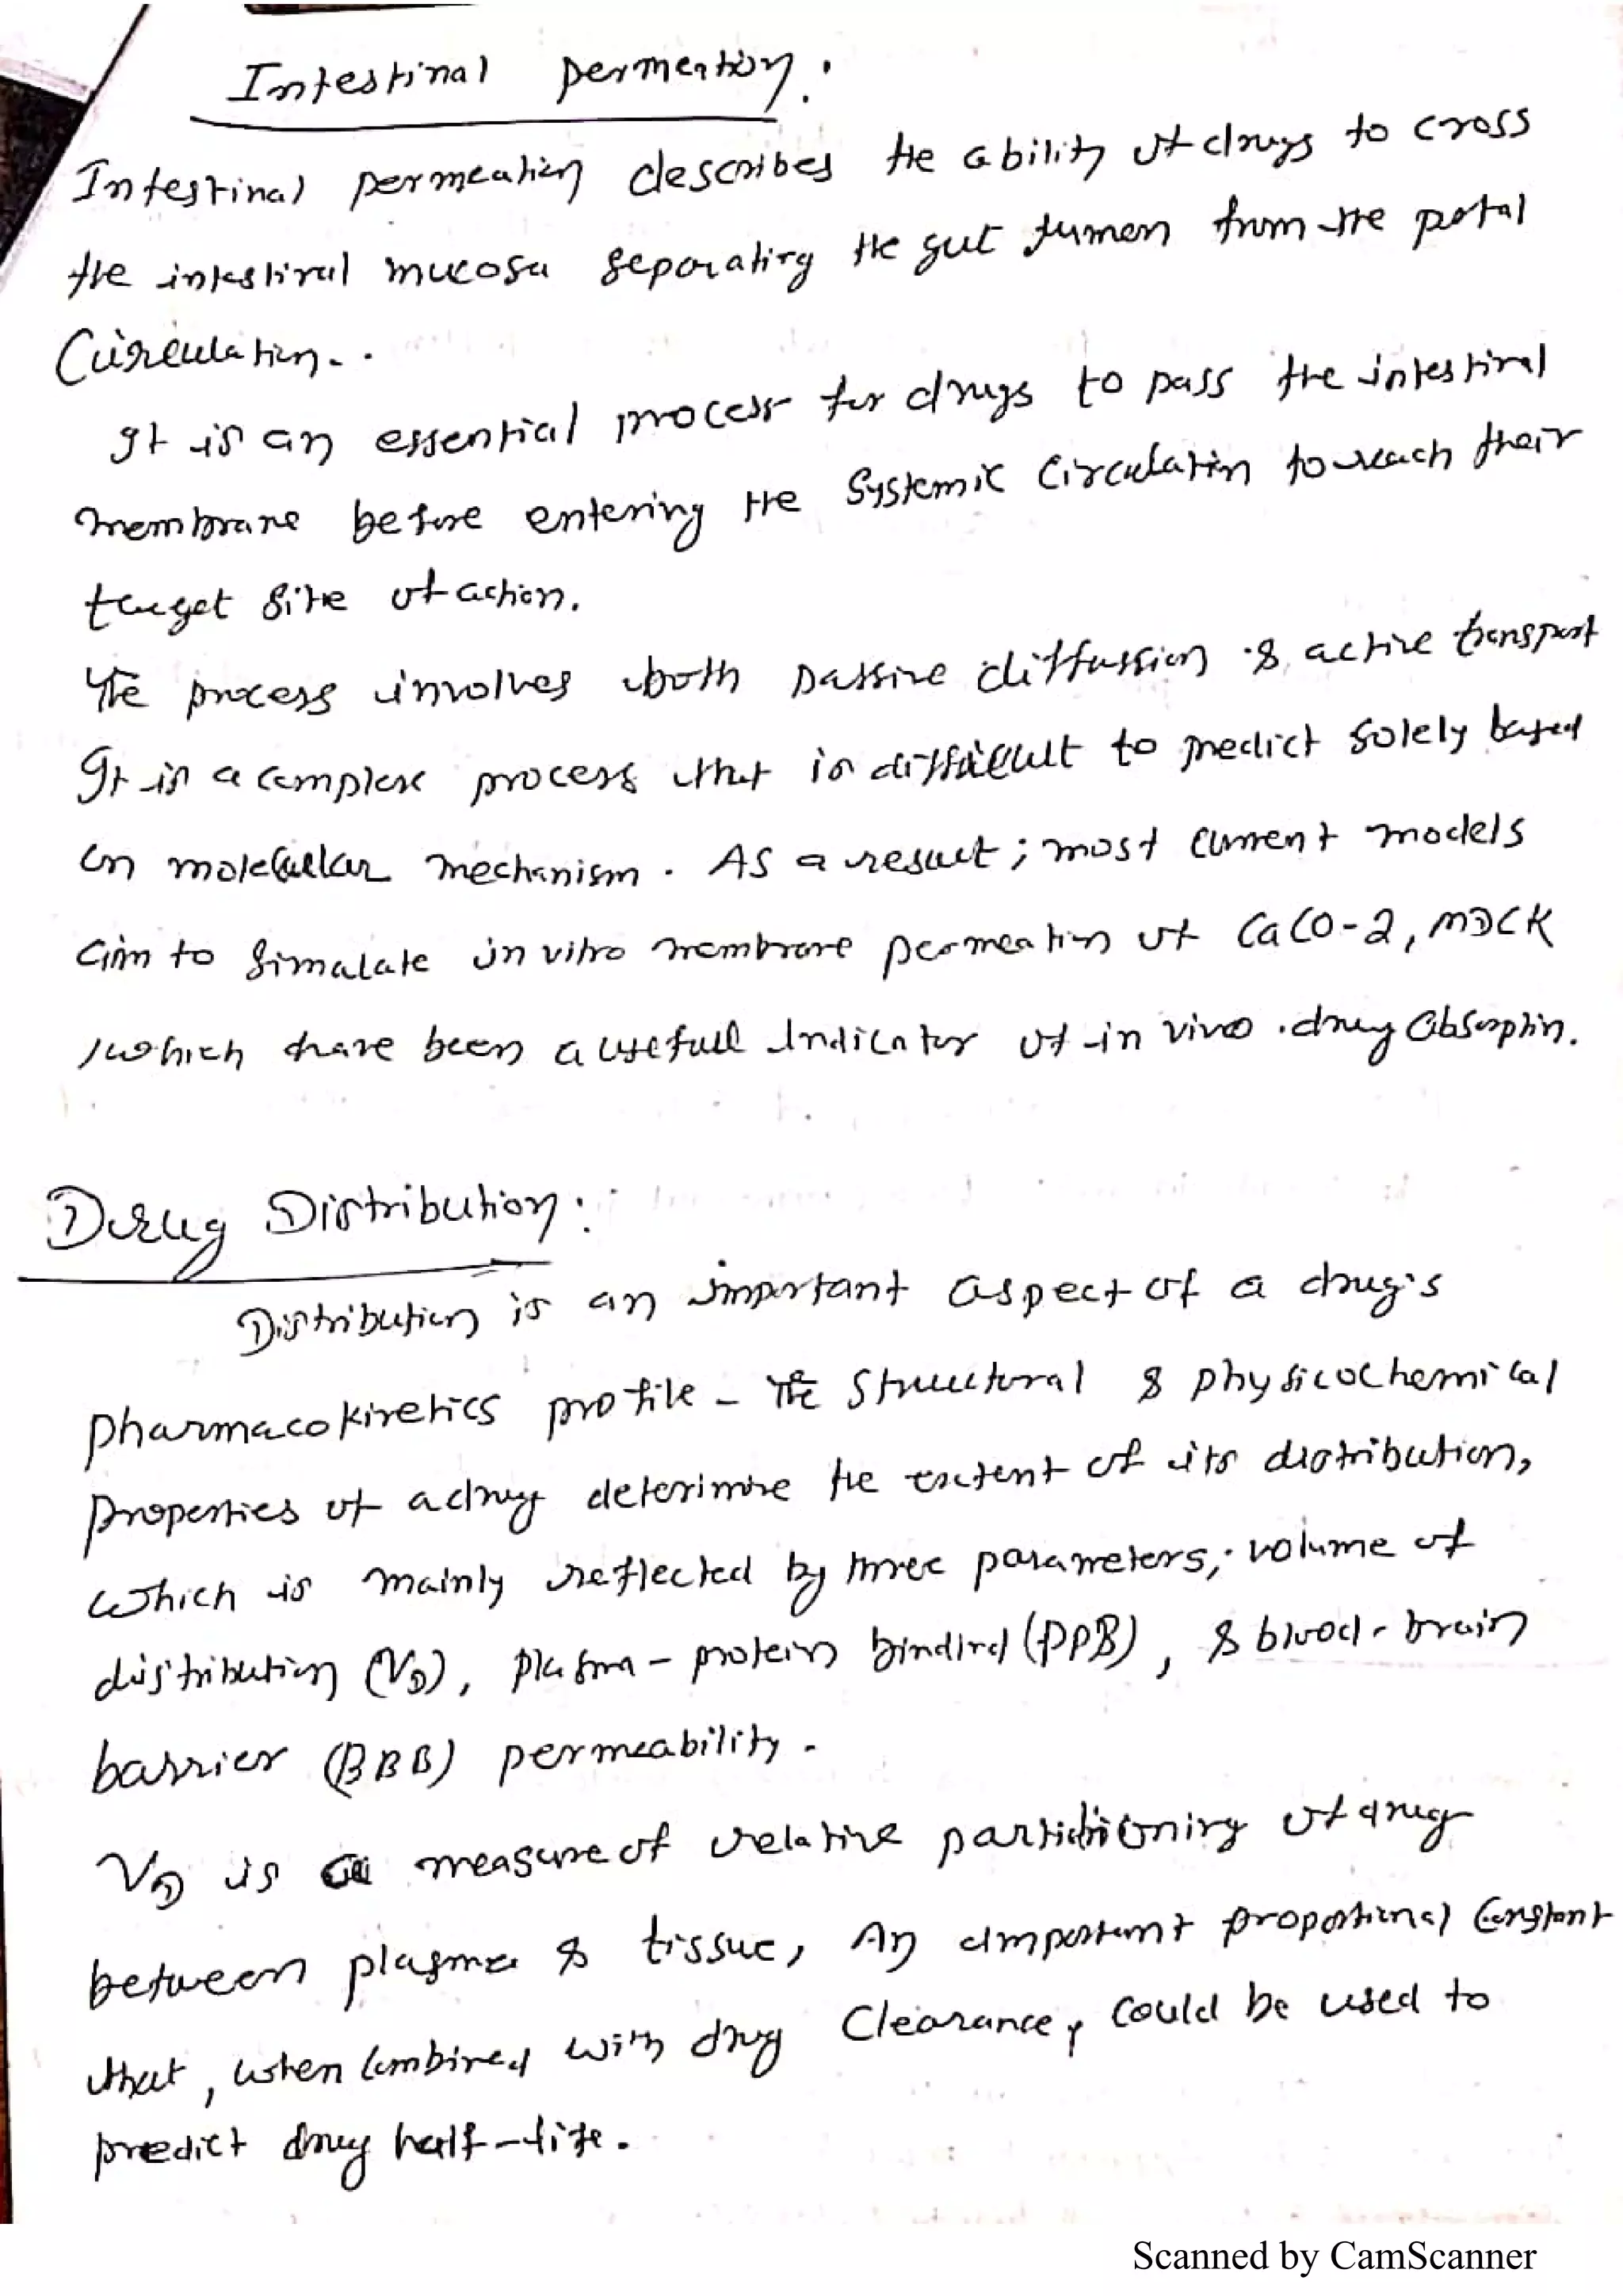 Intestinal permeation :
Intestinal permeation describes the ability of drugs to cross
the intestinal mucosa separating the gut lumen from the portal
Circulation. .
It is an essential process for drugs to pass the intestinal
membrane before entering the Systemic Circulation to reach their
target Site of action.
The process involves both passive diffussion & active transport
It is a complex process that is difficult to predict Solely based
on molecullar mechanism . As a result ; most current models
aim to Simulate in vitro membrane permeation of CaCO-2, MDCK
which have been a usefull Indicator of in vivo drug absorption.
Drug Distribution :
Distribution is an important aspect of a drug's
pharmacokinetics profile - The Structural & physicochemical
properties of a drug determine the extent of its distribution,
which is mainly reflected by three parameters, volume of
distribution (VD), plasma - protein binding (PPB), & blood - brain
barrier (BBB) permeability .
VD is a measure of relative partitioning of drug
between plasma & tissue, An important proportional Constant
that, when combined with drug Clearance, could be used to
predict drug half-life .
Scanned by CamScanner